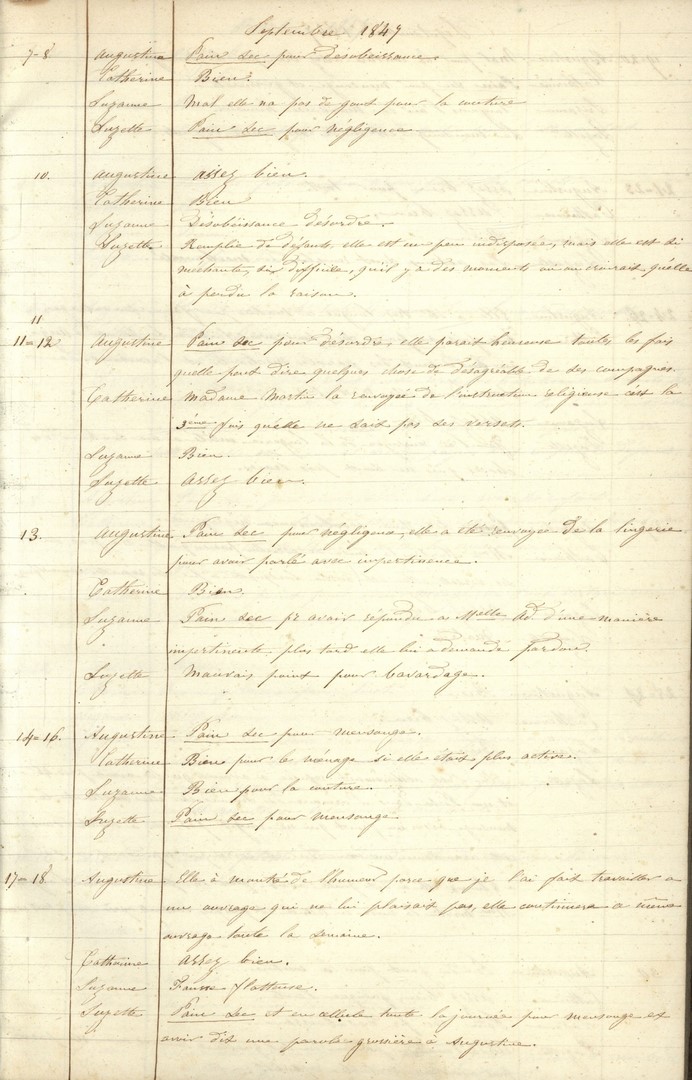 Septembre 1847
7-8 Augustine Pain sec pour désobéissance.
Catherine Bien.
Suzanne Mal elle na pas de gout pour la couture
Suzette Pain sec pour négligence
10. Augustine assez bien.
Catherine Bien
Suzanne Désobéissance désordre.
Suzette Remplie de défauts, elle est un peu indisposée, mais elle est si
méchante, si difficile, qu'il y a des moments où on croirait qu'elle
à perdu la raison.
11
11=12 Augustine Pain sec pour désordre, elle parait heureuse toutes les fois
quelle peut dire quelques chose de désagréable de ses compagnes.
Catherine Madame Martin la renvoyée de l'instruction religieuse c'est la
3ème fois qu'elle ne sait pas ses versets.
Suzanne Bien.
Suzette assez bien.
13. Augustine Pain sec pour négligence, elle a été renvoyée de la lingerie
pour avoir parlé avec impertinence.
Catherine Bien.
Suzanne Pain sec pr avoir répondu a Melle Ad. d'une manière
impertinente, plus tard elle lui a demandé pardon.
Suzette Mauvais point pour bavardage.
14=16. Augustine Pain sec pour mensonge.
Catherine Bien pour le ménage si elle était plus active.
Suzanne Bien pour la couture.
Suzette Pain sec pour mensonge
17=18 Augustine Elle à montré de l'humeur parce que je l'ai fait travailler a
un ouvrage qui ne lui plaisait pas, elle continuera a même
ouvrage toute la semaine.
Catherine assez bien.
Suzanne Fausse flatteuse.
Suzette Pain sec et en cellule toute la journée pour mensonge et
avoir dit une parole grossière à Augustine.